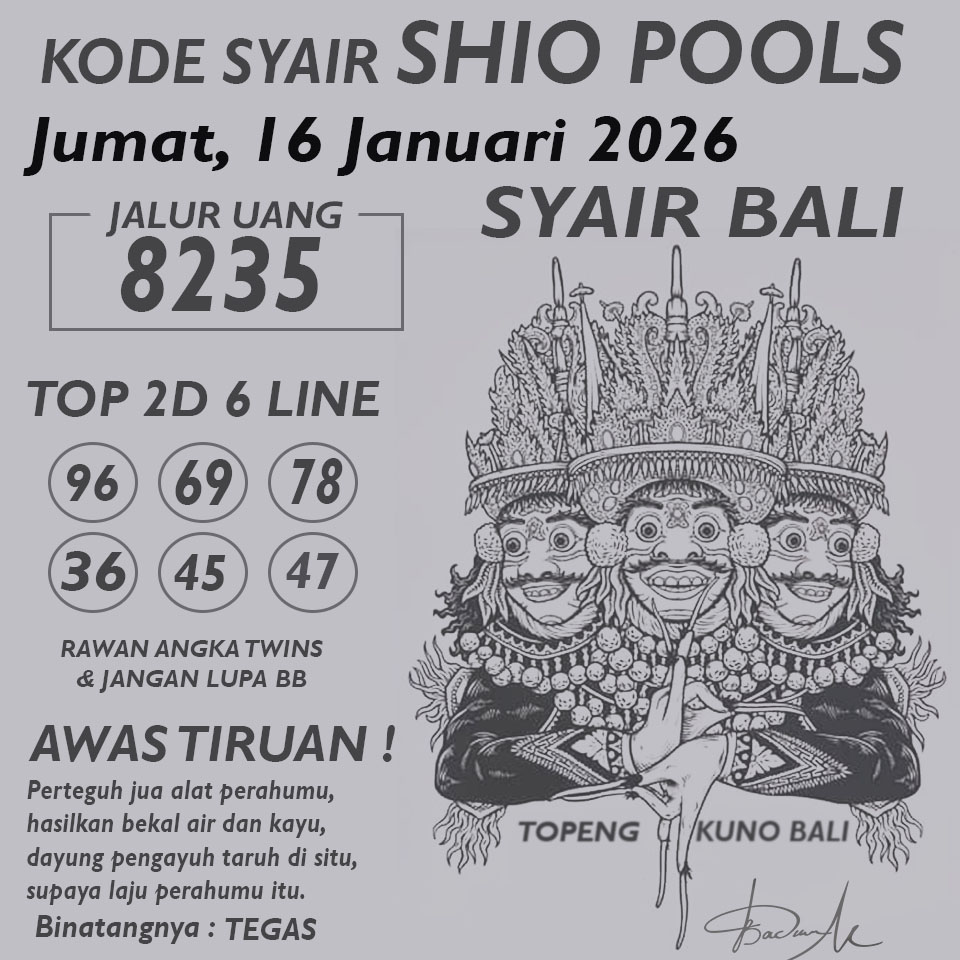 KODE SYAIR SHIO POOLS
Jumat, 16 Januari 2026
SYAIR BALI
JALUR UANG
8235
TOP 2D 6 LINE
96 69 78
36 45 47
RAWAN ANGKA TWINS
& JANGAN LUPA BB
AWAS TIRUAN !
Perteguh jua alat perahumu,
hasilkan bekal air dan kayu,
dayung pengayuh taruh di situ,
supaya laju perahumu itu.
Binatangnya : TEGAS
TOPENG KUNO BALI